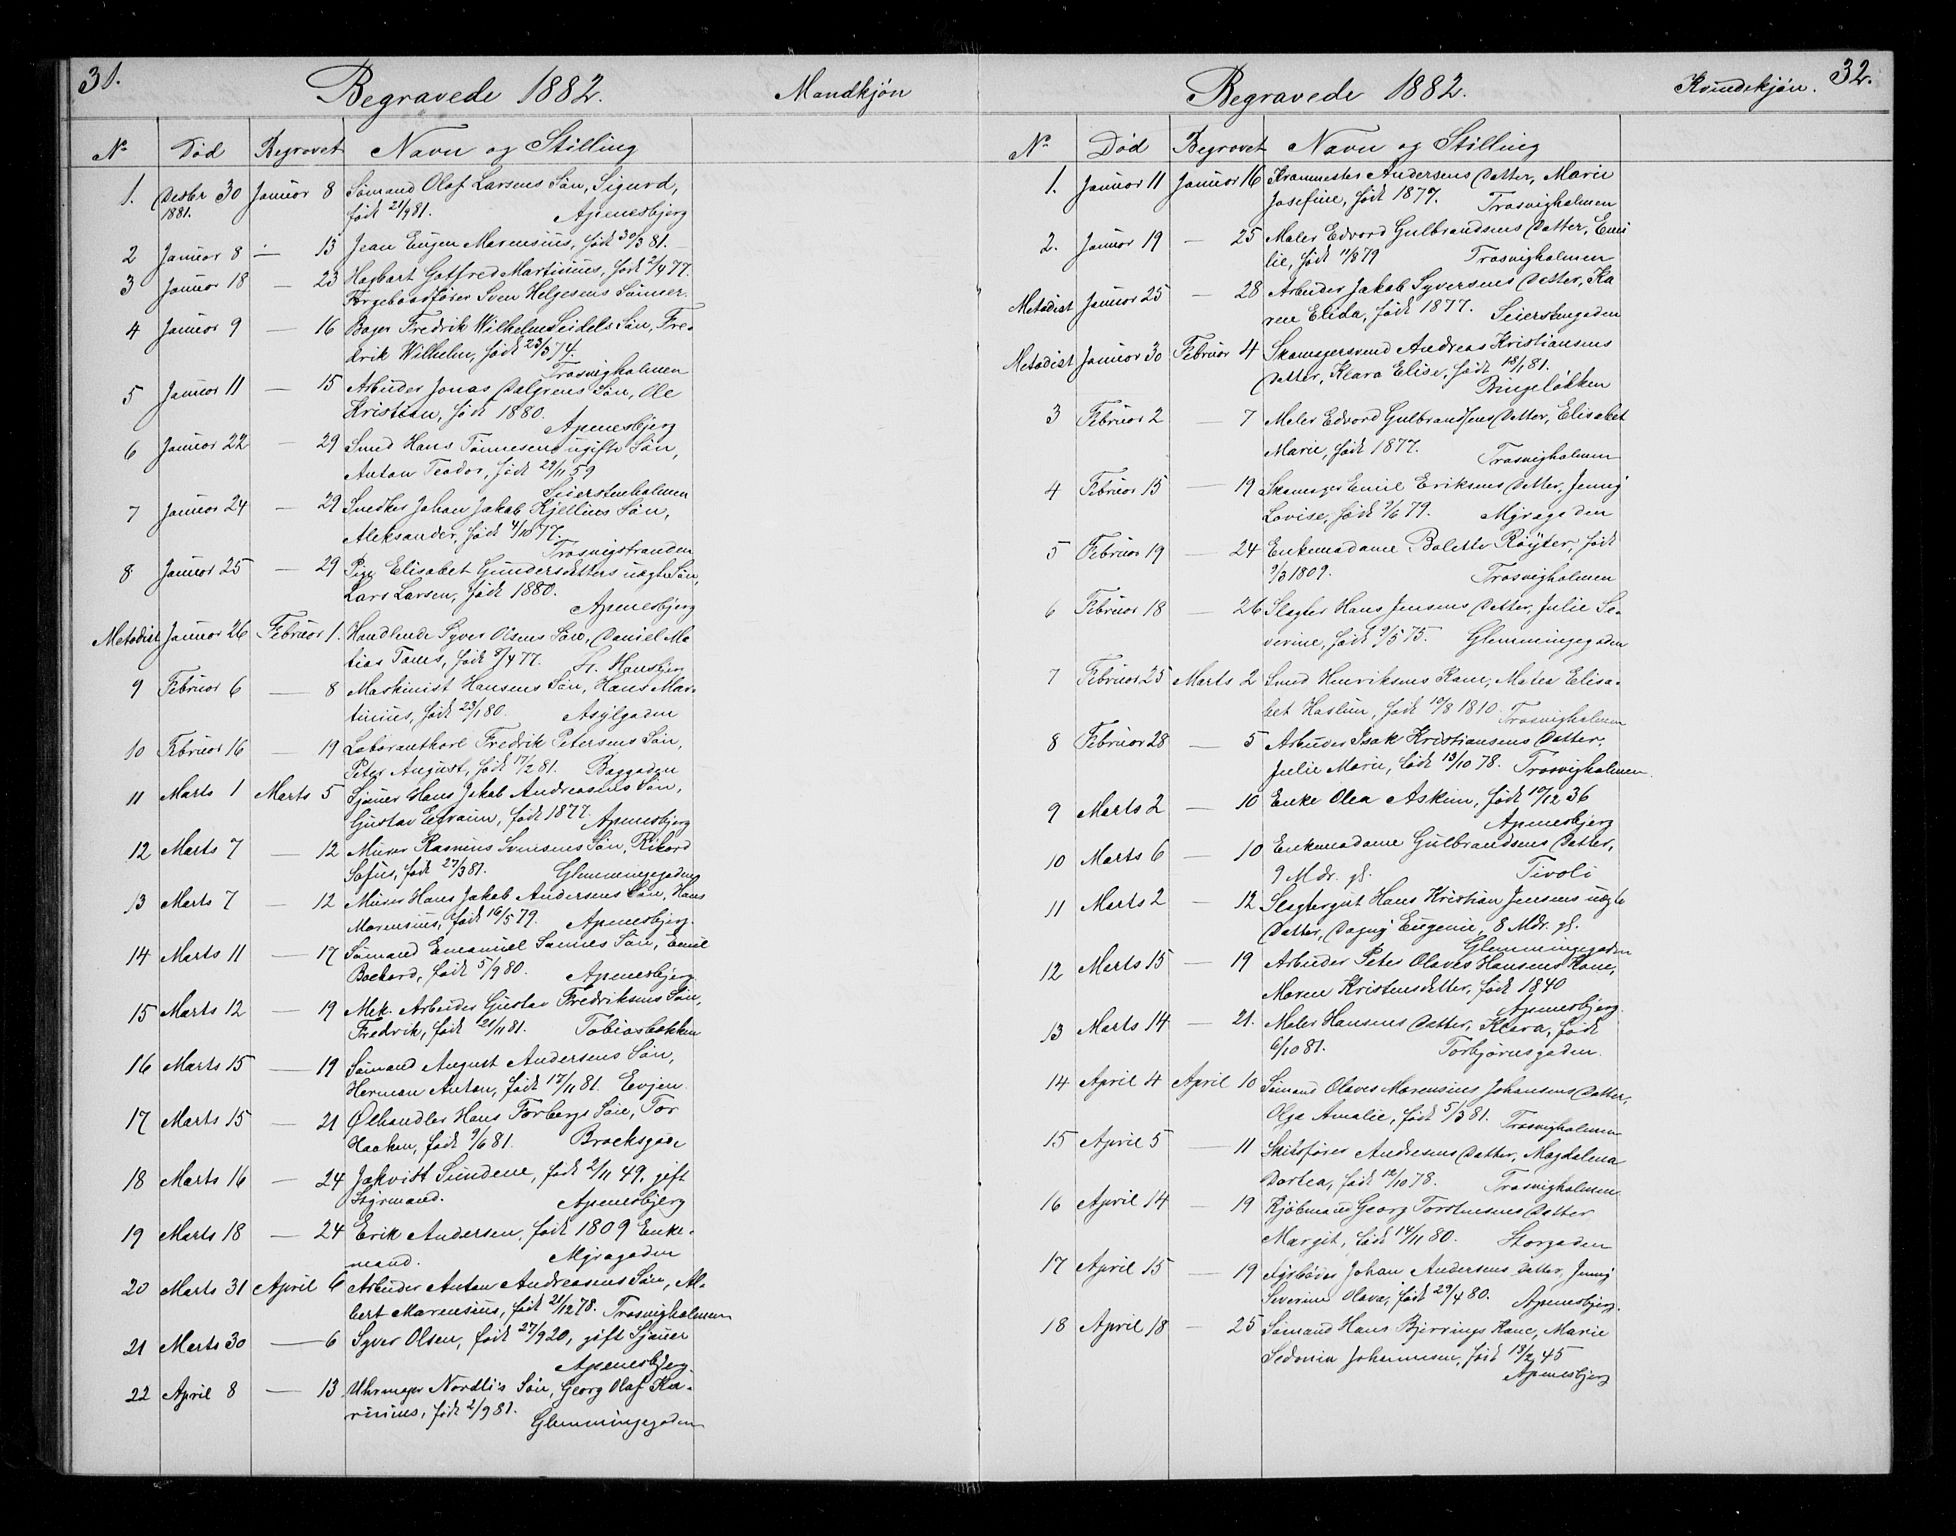 31.
Begravede 1882. Mandkjøn
No Død Begravet Navn og Stilling
1. Decbr 30 Januar 8 Sømand Olaf Larsens Søn, Sigurd,
1881. født 21/9 81. Apenesbjerg
2 Januar 8 — 13 Jean Eugen Marensius, født 30/3 81.
3 Januar 18 — 23 Hagbart Gotfred Martinius, født 2/4 77.
Færgebaadfører Sven Helgesens Sønner.
4 Januar 9 — 16 Bager Fredrik Wilhelm Seidels Søn, Fre-
drik Wilhelm, født 23/3 74.
Trosvigholmen
5 Januar 11 — 15 Arbeider Jonas Dalgrens Søn, Ole
Kristian, født 1880.
Apenesbjerg
6 Januar 22 — 29 Smed Hans Tønnesens ugifte Søn,
Anton Teodor, født 29/11 59
Seierstenholmen
7 Januar 24 — 29 Snedker Johan Jakob Kjellins Søn,
Aleksander, født 4/10 77.
Trosvigstranden
8 Januar 25 — 29 Pige Elisabet Gundersdatters uægte Søn,
Lars Larsen, født 1880.
Apenesbjerg
Metodist Januar 26 Februar 1. Handlende Syver Olsens Søn, Daniel Ma
tias født 9/4 77. St. Hansbjerg
9 Februar 6 — 8 Maskinist Hansens Søn, Hans Mar-
tinius, født 23/1 80. Asylgaden
10 Februar 16 — 19 Fredrik Petersens Søn,
Peter August, født 17/2 81. Baggaden
11 Marts 1 Marts 5 Sjauer Hans Jakob Andreasens Søn,
Gustav Efraim, født 1877. Apenesbjerg
12 Marts 7 — 12 Murer Rasmus Svensens Søn, Rikard
Sofus, født 27/3 81. Glemmingegaden
13 Marts 7 — 12 Murer Hans Jakob Andersens Søn, Hans
Marensius, født 16/5 79. Apenesbjerg.
14 Marts 11 — 17 Sømand Emanuel Sannes Søn, Emil
født 5/9 80. Apenesbjerg
15 Marts 12 — 19 Mek. Arbeider Gustav Fredriksens Søn,
Fredrik, født 21/11 81. Tobiasbakken
16 Marts 15 — 19 Sømand August Andersens Søn,
Herman Anton, født 17/11 81. Evjen.
17 Marts 15 — 21 Ølhandler Hans Torbergs Søn, Tor
Haaken, født 9/6 81. Brocksgade
18 Marts 16 — 24 Jakvitt Sundene, født 2/11 49, gift
Styrmand. Apenesbjerg
19 Marts 18 — 24 Erik Andersen, født 1809 Enke-
mand. Myragaden
20 Marts 31 April 6 Arbeider Anton Andreasens Søn, Al-
bert Marensius, født 21/12 78. Trosvigholmen
21 Marts 30 — 6 Syver Olsen, født 27/9 20, gift Sjauer
Apenesbjerg.
22 April 8 — 13 Uhrmager Nordli's Søn, Georg Olaf Ka-
rinius, født 2/9 81.
Glemmingegaden
32.
Begravede 1882. Kvindekjøn.
No Død Begravet Navn og Stilling
1. Januar 11 Januar 16 Andersens Datter, Marie
Josefine, født 1877. Trosvigholmen
2. Januar 19 — 25 Maler Edvard Gulbrandsens Datter, Emi
lie, født 11/8 79 Trosvigholmen
Metodist Januar 25 — 28 Arbeider Jakob Syversens Datter, Ka
ren Elida, født 1877. Seierstengaden
Metodist Januar 30 Februar 4 Skomagersvend Andreas Kristiansens
Datter, Klara Elise, født 18/1 81.
Bingeløkken
3 Februar 2 — 7 Maler Edvard Gulbrandsens Datter, Elisabet
Marie, født 1877.
Trosvigholmen
4 Februar 15 — 19 Skomager Emil Eriksens Datter, Jenny
Lovise, født 9/6 79. Myragaden
5 Februar 19 — 24 Enkemadame Bolette Røyter, født
9/3 1809. Trosvigholmen
6 Februar 18 — 26 Slagter Hans Jensens Datter, Julie Se-
verine, født 9/5 75. Glemmingegaden
7 Februar 25 Marts 2 Smed Henriksens Kone, Matea Elisa-
bet Haslim, født 19/8 1810. Trosvigholmen
8 Februar 28 — 5 Arbeider Isak Kristiansens Datter,
Julie Marie, født 13/10 78. Trosvigholmen.
9 Marts 2 — 10 Enke Olea Askim, født 19/12 36
Apenesbjerg
10 Marts 6 — 10 Enkemadame Gulbrandsens Datter,
9 Mdr. gl. Tivoli
11 Marts 2 — 12 Slagtergut Hans Kristian Jensens uægte
Datter, Dagny Eugenie, 8 Mdr. gl.
Glemmingegaden
12 Marts 15 — 19 Arbeider Peter Olaves Hansens Kone,
Maren Kristensdatter, født 1840
Apenesbjerg.
13 Marts 14 — 21. Maler Hansens Datter, Klara, født
6/10 81. Torbjørnsgaden.
14 April 4 April 10 Sømand Olaves Marensius Johansens Datter,
Olga Amalie, født 5/3 81. Trosvigholmen
15 April 5 — 11 Skibsfører Andresens Datter, Magdalena
Dortea, født 12/10 78. Trosvigholmen.
16 April 14 — 19 Kjøbmand Georg Torstensens Datter
Margit, født 14/11 80. Storgaden
17 April 15 — 19 Fyrbøder Johan Andersens Datter, Jenny
Severine Olava, født 29/4 80. Apenesbjerg.
18 April 18 — 25 Sømand Hans Bjerrings Kone, Marie
Sedonia Johannesen, født 13/2 45
Apenesbjerg